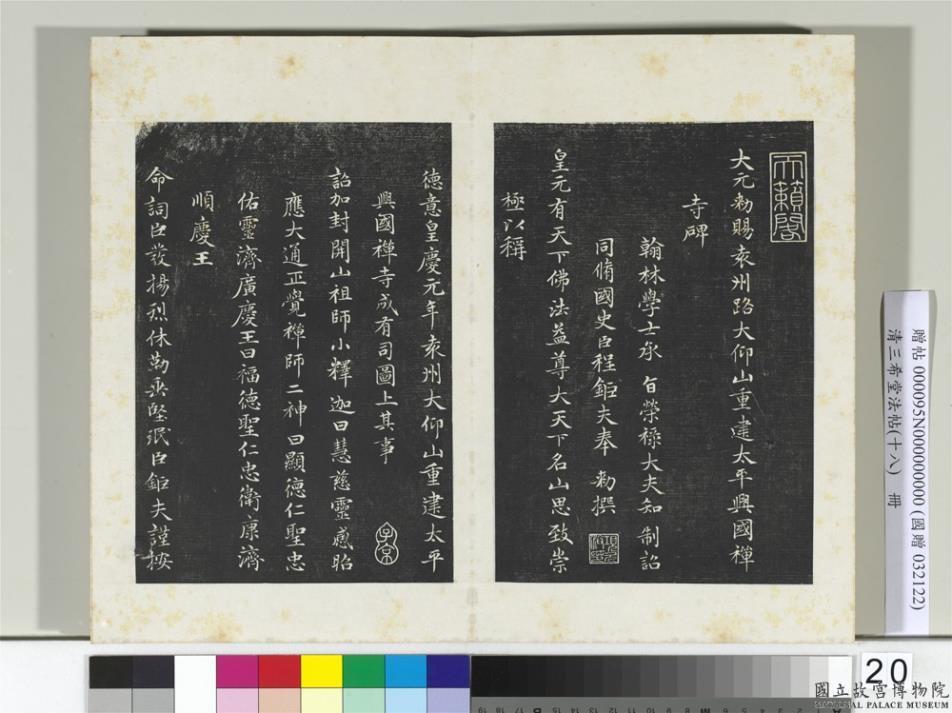 天籟閣
大元勑賜袁州路大仰山重建太平興國禪
寺碑
翰林學士承 旨榮祿大夫知 制誥
同脩國史臣程鉅夫奉 勑撰
皇元有天下佛法益尊大天下名山思致崇
極以稱
德意皇慶元年袁州大仰山重建太平
興國禪寺成有司圖上其事
子京
詔加封開山祖師小釋迦曰慧慈靈感昭
應大通正覺禪師二神曰顯德仁聖忠
佑靈濟廣慶王曰福德聖仁忠衛康濟
順慶王
命詞臣發揚烈休勒垂堅珉臣鉅夫謹按
贈帖 000095N000000000 (國贈 032122)
清三希堂法帖(十八) 冊
20
國立故宮博物院
NATIONAL PALACE MUSEUM